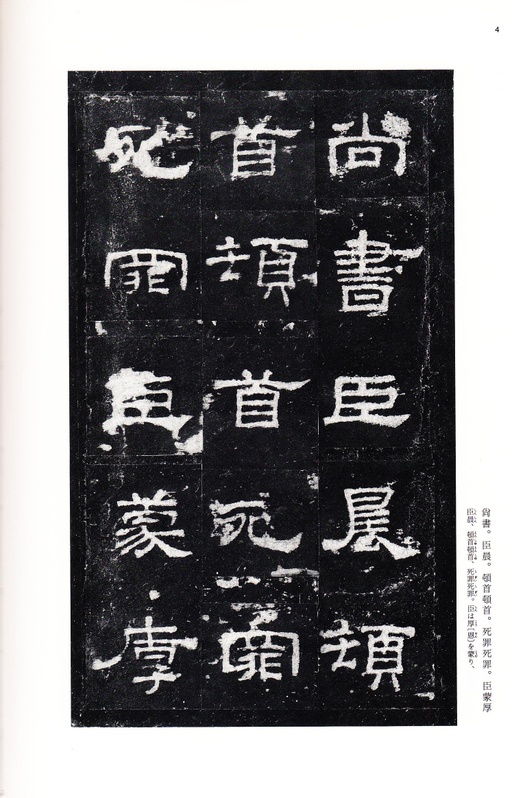 4
尚書臣晨頓
首頓首死罪
死罪臣蒙厚
尙書。臣晨。頓首頓首。死罪死罪。臣蒙厚
臣晨、頓首頓首、死罪死罪。臣は厚〔恩〕を蒙り、